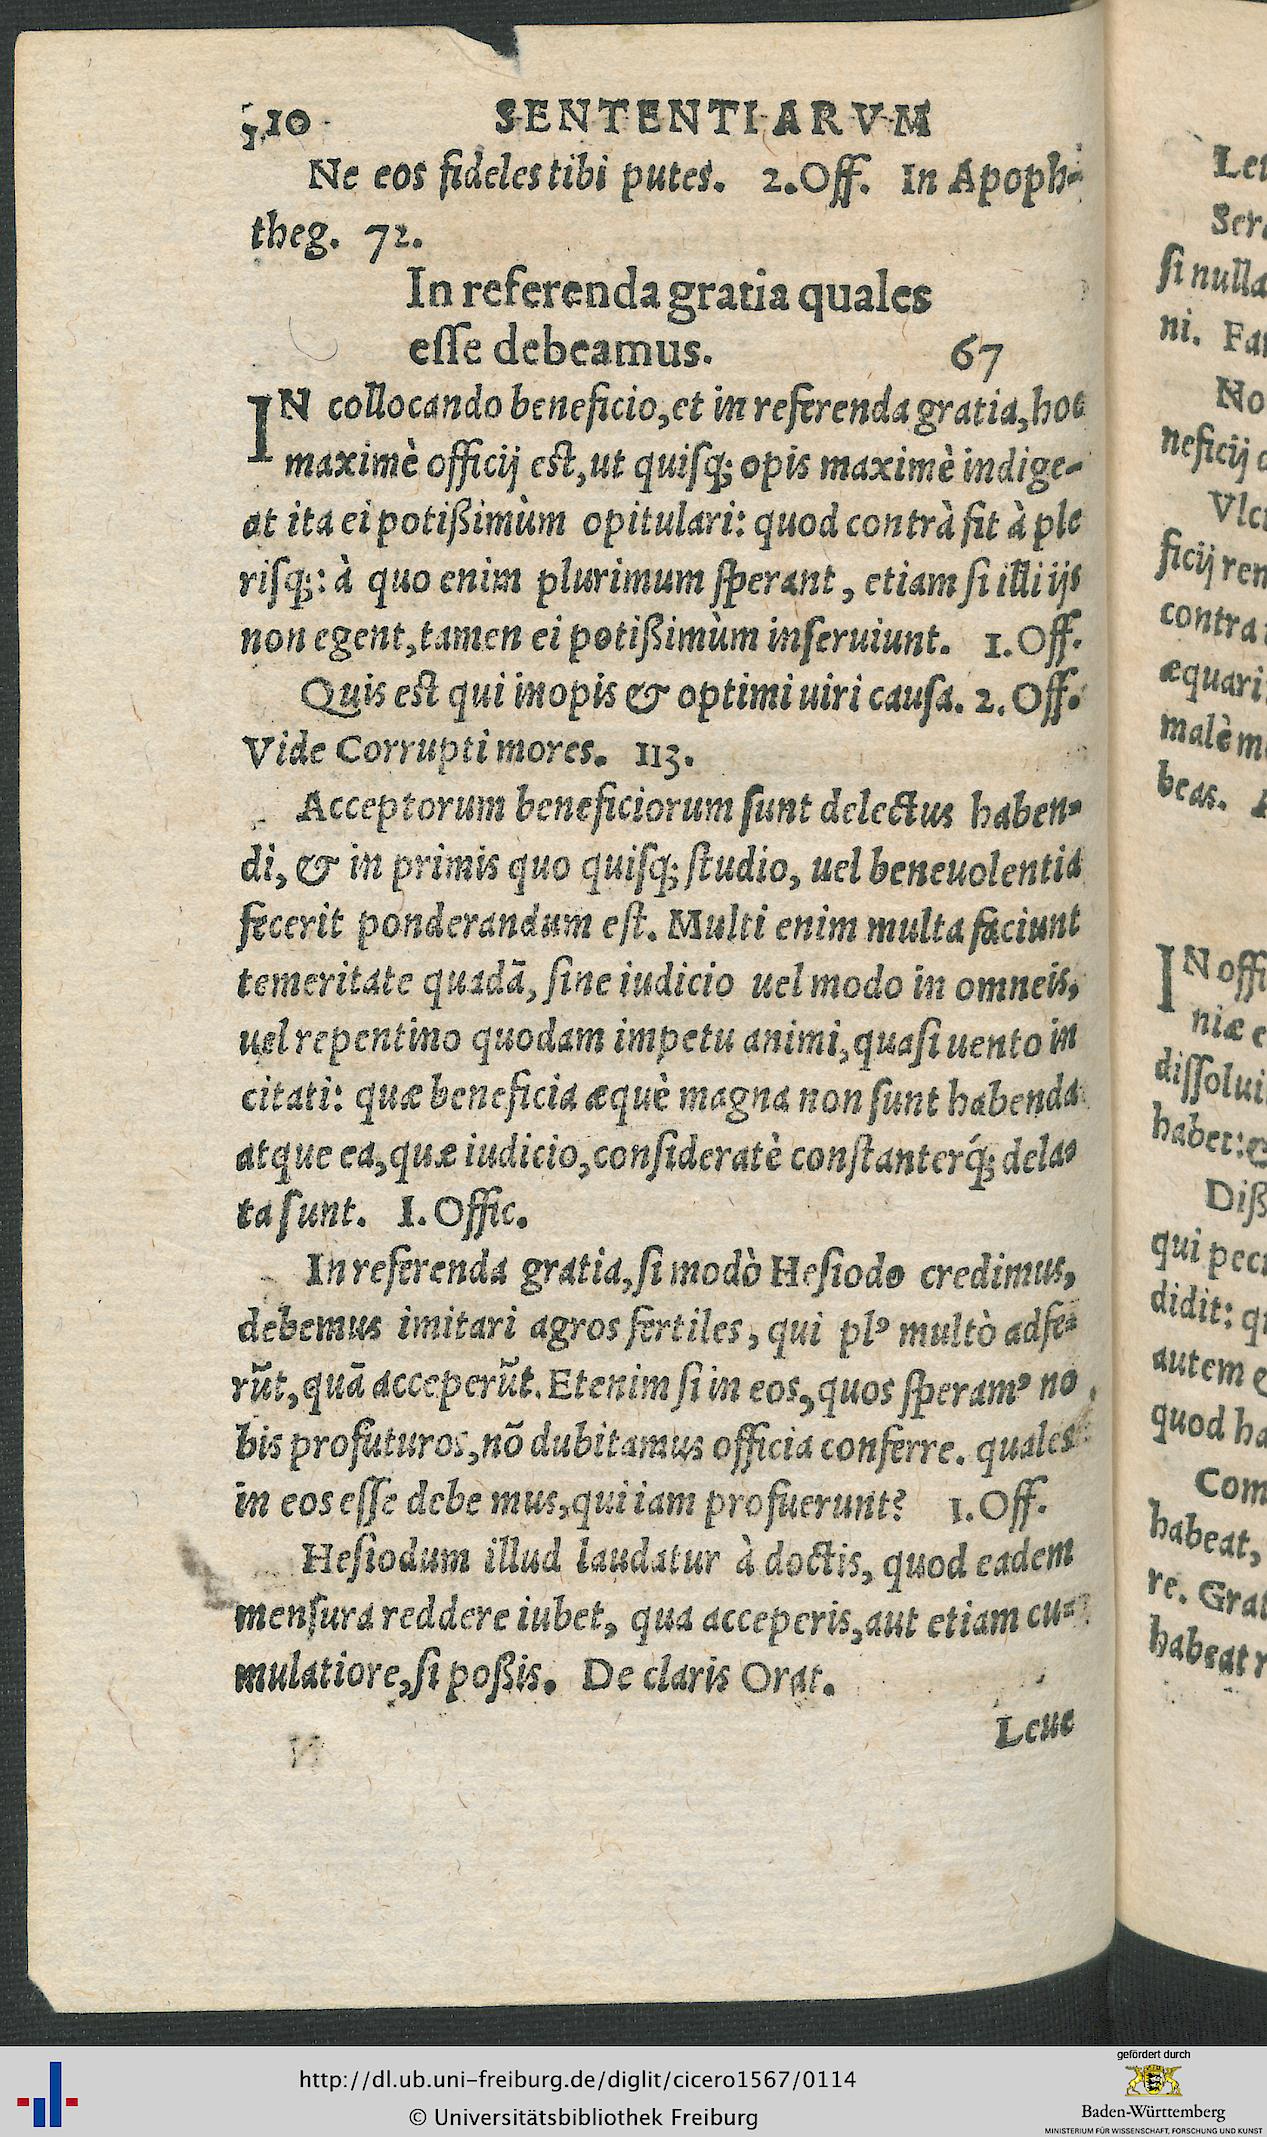 110 SENTENTIARVM
Ne eos fideles tibi putes. 2.Off. In Apoph-
theg. 72.
In referenda gratia quales
eſſe debeamus. 67
IN collocando beneficio, et in referenda gratia, hoc
maximè officij eſt, ut quiſq; opis maximè indige-
at ita ei potißimùm opitulari: quod contrà fit à ple
riſq;: à quo enim plurimum ſperant, etiam ſi illi ijs
non egent, tamen ei potißimùm inſeruiunt. 1.Off.
Quis eſt qui inopis & optimi uiri cauſa. 2. Off.
Vide Corrupti mores. 113.
Acceptorum beneficiorum ſunt delectus haben-
di, & in primis quo quiſq; ſtudio, uel beneuolentia
fecerit ponderandum eſt. Multi enim multa faciunt
temeritate quadã, ſine iudicio uel modo in omneis,
uel repentino quodam impetu animi, quaſi uento in
citati: quæ beneficia æquè magna non ſunt habenda
atque ea, quæ iudicio, conſideratè conſtanterq́; dela-
ta ſunt. 1. Offic.
In referenda gratia, ſi modò Heſiodo credimus,
debemus imitari agros fertiles, qui plꝰ multò adfe-
rũt, quã acceperũt. Etenim ſi in eos, quos ſperamꝰ no
bis profuturos, nõ dubitamus officia conferre. quales
in eos eſſe debe mus, qui iam profuerunt? 1.Off.
Heſiodum illud laudatur à doctis, quod eadem
menſura reddere iubet, qua acceperis, aut etiam cu-
mulatiore, ſi poßis. De claris Orat.
Leue
Ser
ſi nulla
ni.
No
neficij
ficij ren
contra
æquari
malè m
beas.
IN offi
niæ e
diſſolui
habet:
Diß
qui pec
didit: q
autem
quod ha
Com
habeat,
re. Gra
habeat r
http://dl.ub.uni-freiburg.de/diglit/cicero1567/0114
© Universitätsbibliothek Freiburg
gefördert durch
Baden-Württemberg
MINISTERIUM FÜR WISSENSCHAFT, FORSCHUNG UND KUNST